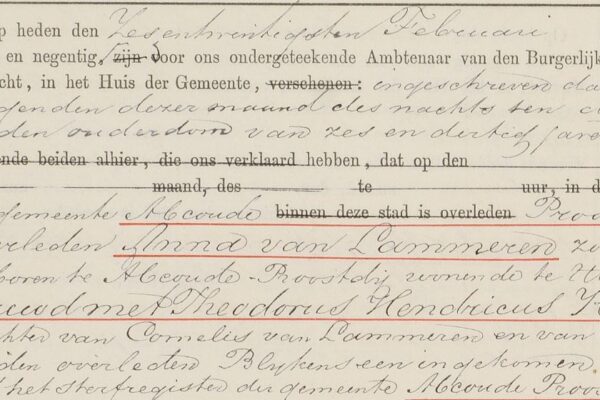 p heden den Zesentwintigsten Februari
en negentig, zijn voor ons ondergeteekende Ambtenaar van den Burgerlijk
cht, in het Huis der Gemeente, verschenen: ingeschreven da
genden dezer maand des nachts ten
den ouderdom van zes en dertig jare
ende beiden alhier, die ons verklaard hebben, dat op den
maand, des te uur, in d
gemeente Abcoude binnen deze stad is overleden Proo
erleden Anna van Lammeren zo
boren te Abcoude-Proostdij wonende te U
uwd met Theodorus Hendricus
chter van Cornelis van Lammeren en van
iden overleden Blykens een ingekomen
het sterfregister der gemeente Abcoude Proo